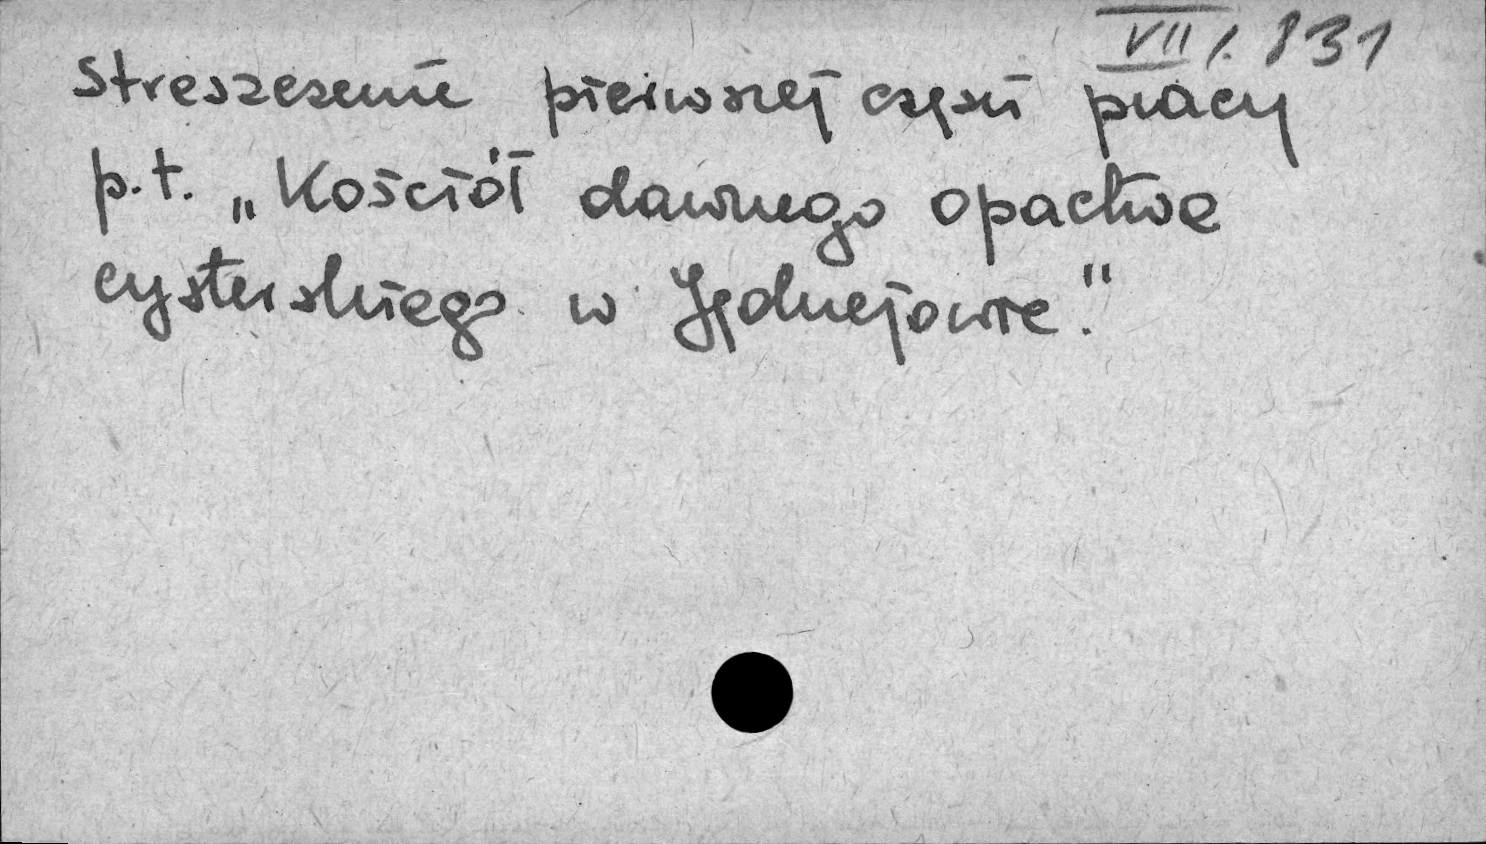 VII/. 831
Streszczenie pierwszej części pracy
p.t. „Kościół dawnego opactwa
cysterskiego w Jędrzejowie."